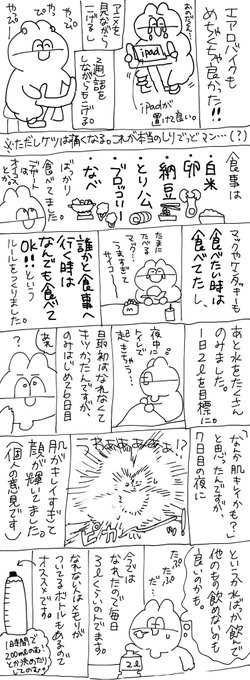 エアロバイクも
めちゃくちゃ良かった!!
おのだえ、
iPad
iPadが
置けて良い。
アニメを
見ながら
こげるし
通話を
しながらもこげる
やっぴ
やっぴ
やっぴ
※ただしケツは痛くなる。これが本当のしりでっどマン…(?)
食事は
・白米
・卵
・納豆
・とりハム
・ブロッコリー
・なべ
ばっかり
食べてました。
デザートは
オイコス
マックやケンタッキーも
食べたい時は
食べてたし、
誰かと食事へ
行く時は
なんでも食べて
OK!!という
ルールをつくりました。
たまに
たべる
マック…
うますぎて
サイコー
あと水をたくさん
のみました。
1日2ℓを目標に。
夜中に
トイレで
起きちゃう…
最初はなれなくて
キツかったんですが、
のみはじめて6日目
あれ
?
「なんか肌キレイかも?」
と思ったんですが、
7日目の夜に
うわあぁあぁあぁ!?
肌がキレイすぎて
顔が輝いてました。
(個人の意見です)
というか水ばっか飲んで
他のもの飲めないのも
良いのかも。
たぷ
たぷ
だ…
2ℓ
今では
なれたので毎日
3ℓくらいのんでます。
なれない人はメモリが
ついてるボトルもあるので
オススメです。
1時間で
200mlのむ…
とか決めたり
してたのむ。